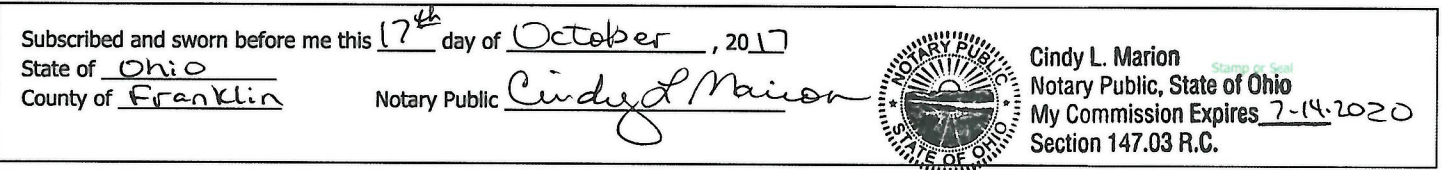 Subscribed and sworn before me this 17th day of October, 2017
State of Ohio
County of Franklin
Notary Public Cindy L Marion
NOTARY PUBLIC
STATE OF OHIO
Stamp or Seal
Cindy L. Marion
Notary Public, State of Ohio
My Commission Expires 7-14-2020
Section 147.03 R.C.